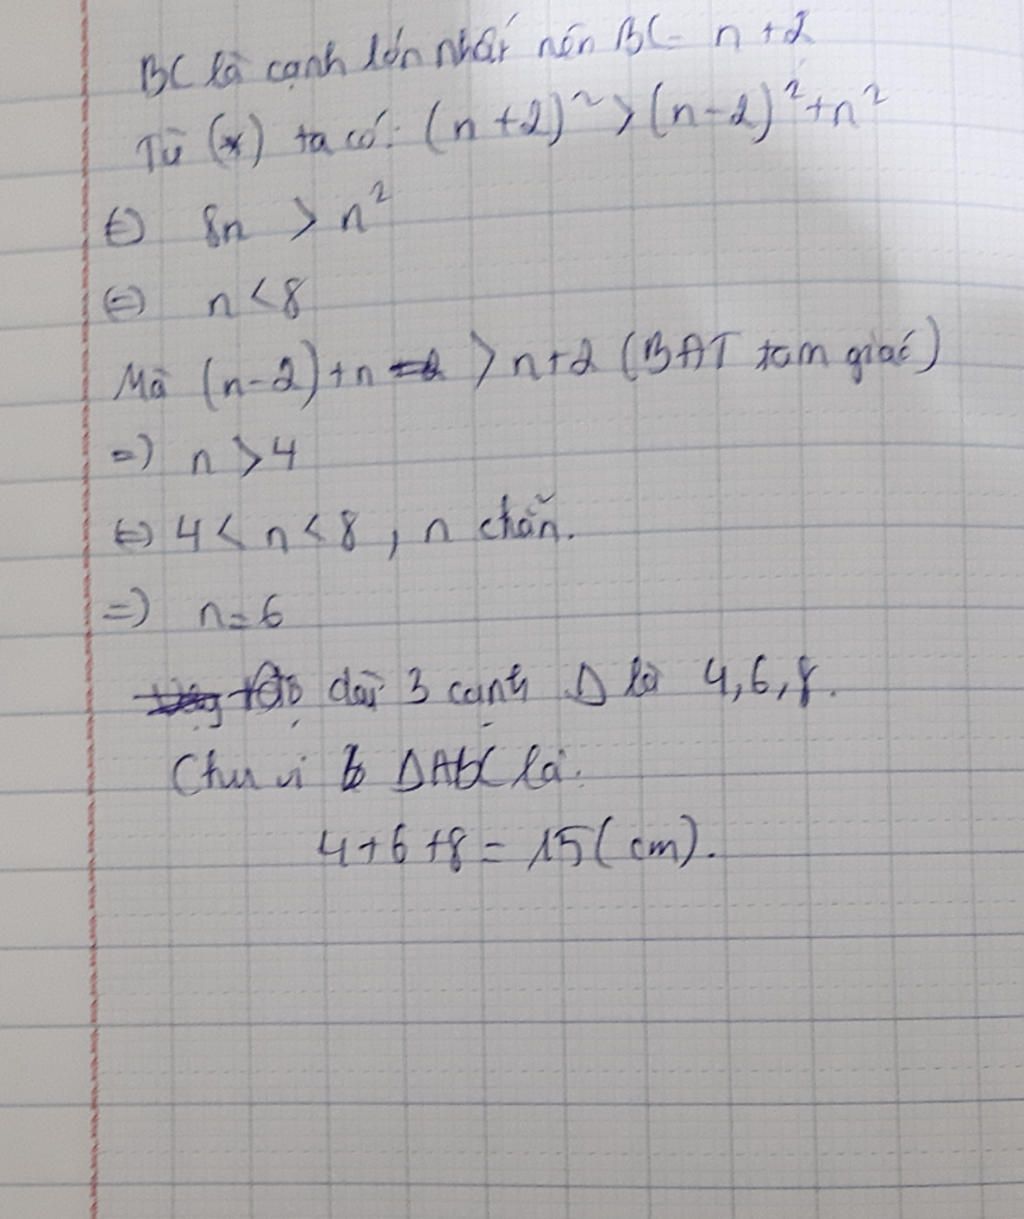 BC là cạnh lớn nhất nên BC = n + 2
Từ (*) ta có: (n + 2)² > (n - 2)² + n²
⇔ 8n > n²
⇔ n < 8
Mà (n - 2) + n > n + 2 (BĐT tam giác)
=> n > 4
⇔ 4 < n < 8 , n chẵn.
=> n = 6
độ dài 3 cạnh Δ là 4, 6, 8.
Chu vi ΔABC là:
4 + 6 + 8 = 15 (cm).